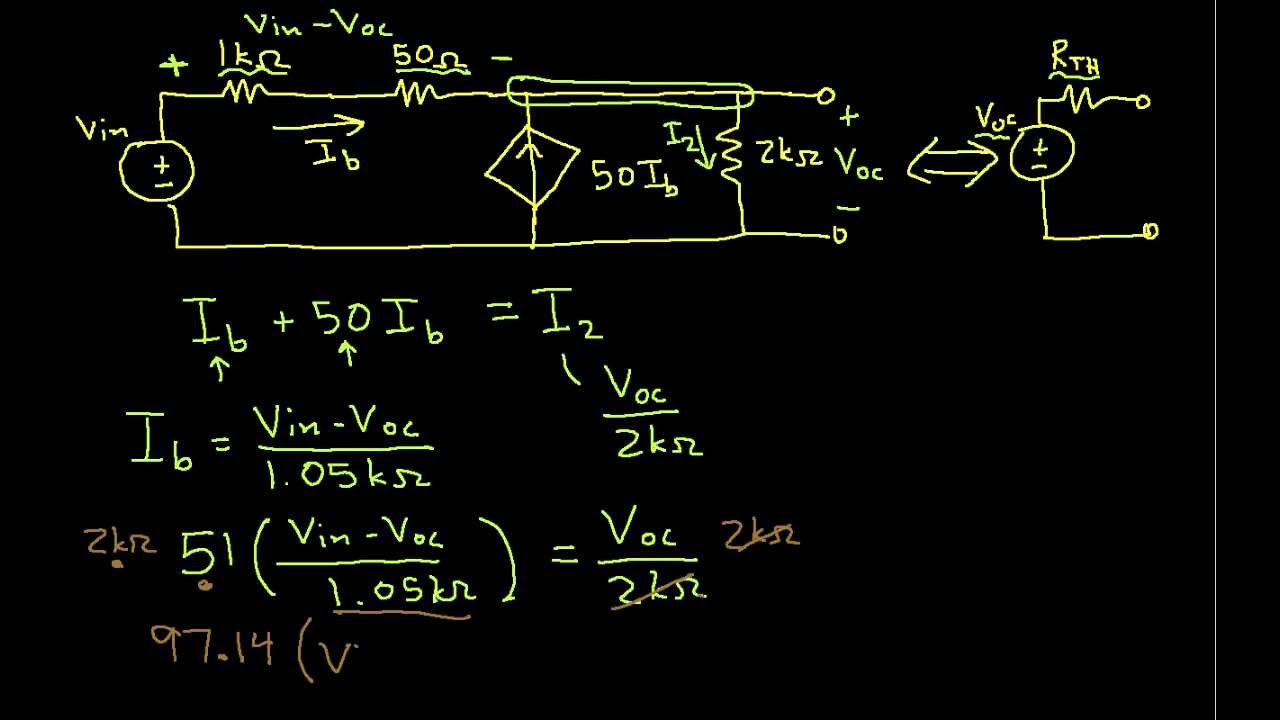 Vin - Voc
+ 1kΩ 50Ω - RTH
Vin + - Ib 50Ib I2 2kΩ + Voc - Voc + -
Ib + 50 Ib = I2
Voc
2kΩ
Ib = Vin - Voc
1.05kΩ
2kΩ 51 ( Vin - Voc ) = Voc 2kΩ
1.05kΩ 2kΩ
97.14 ( V